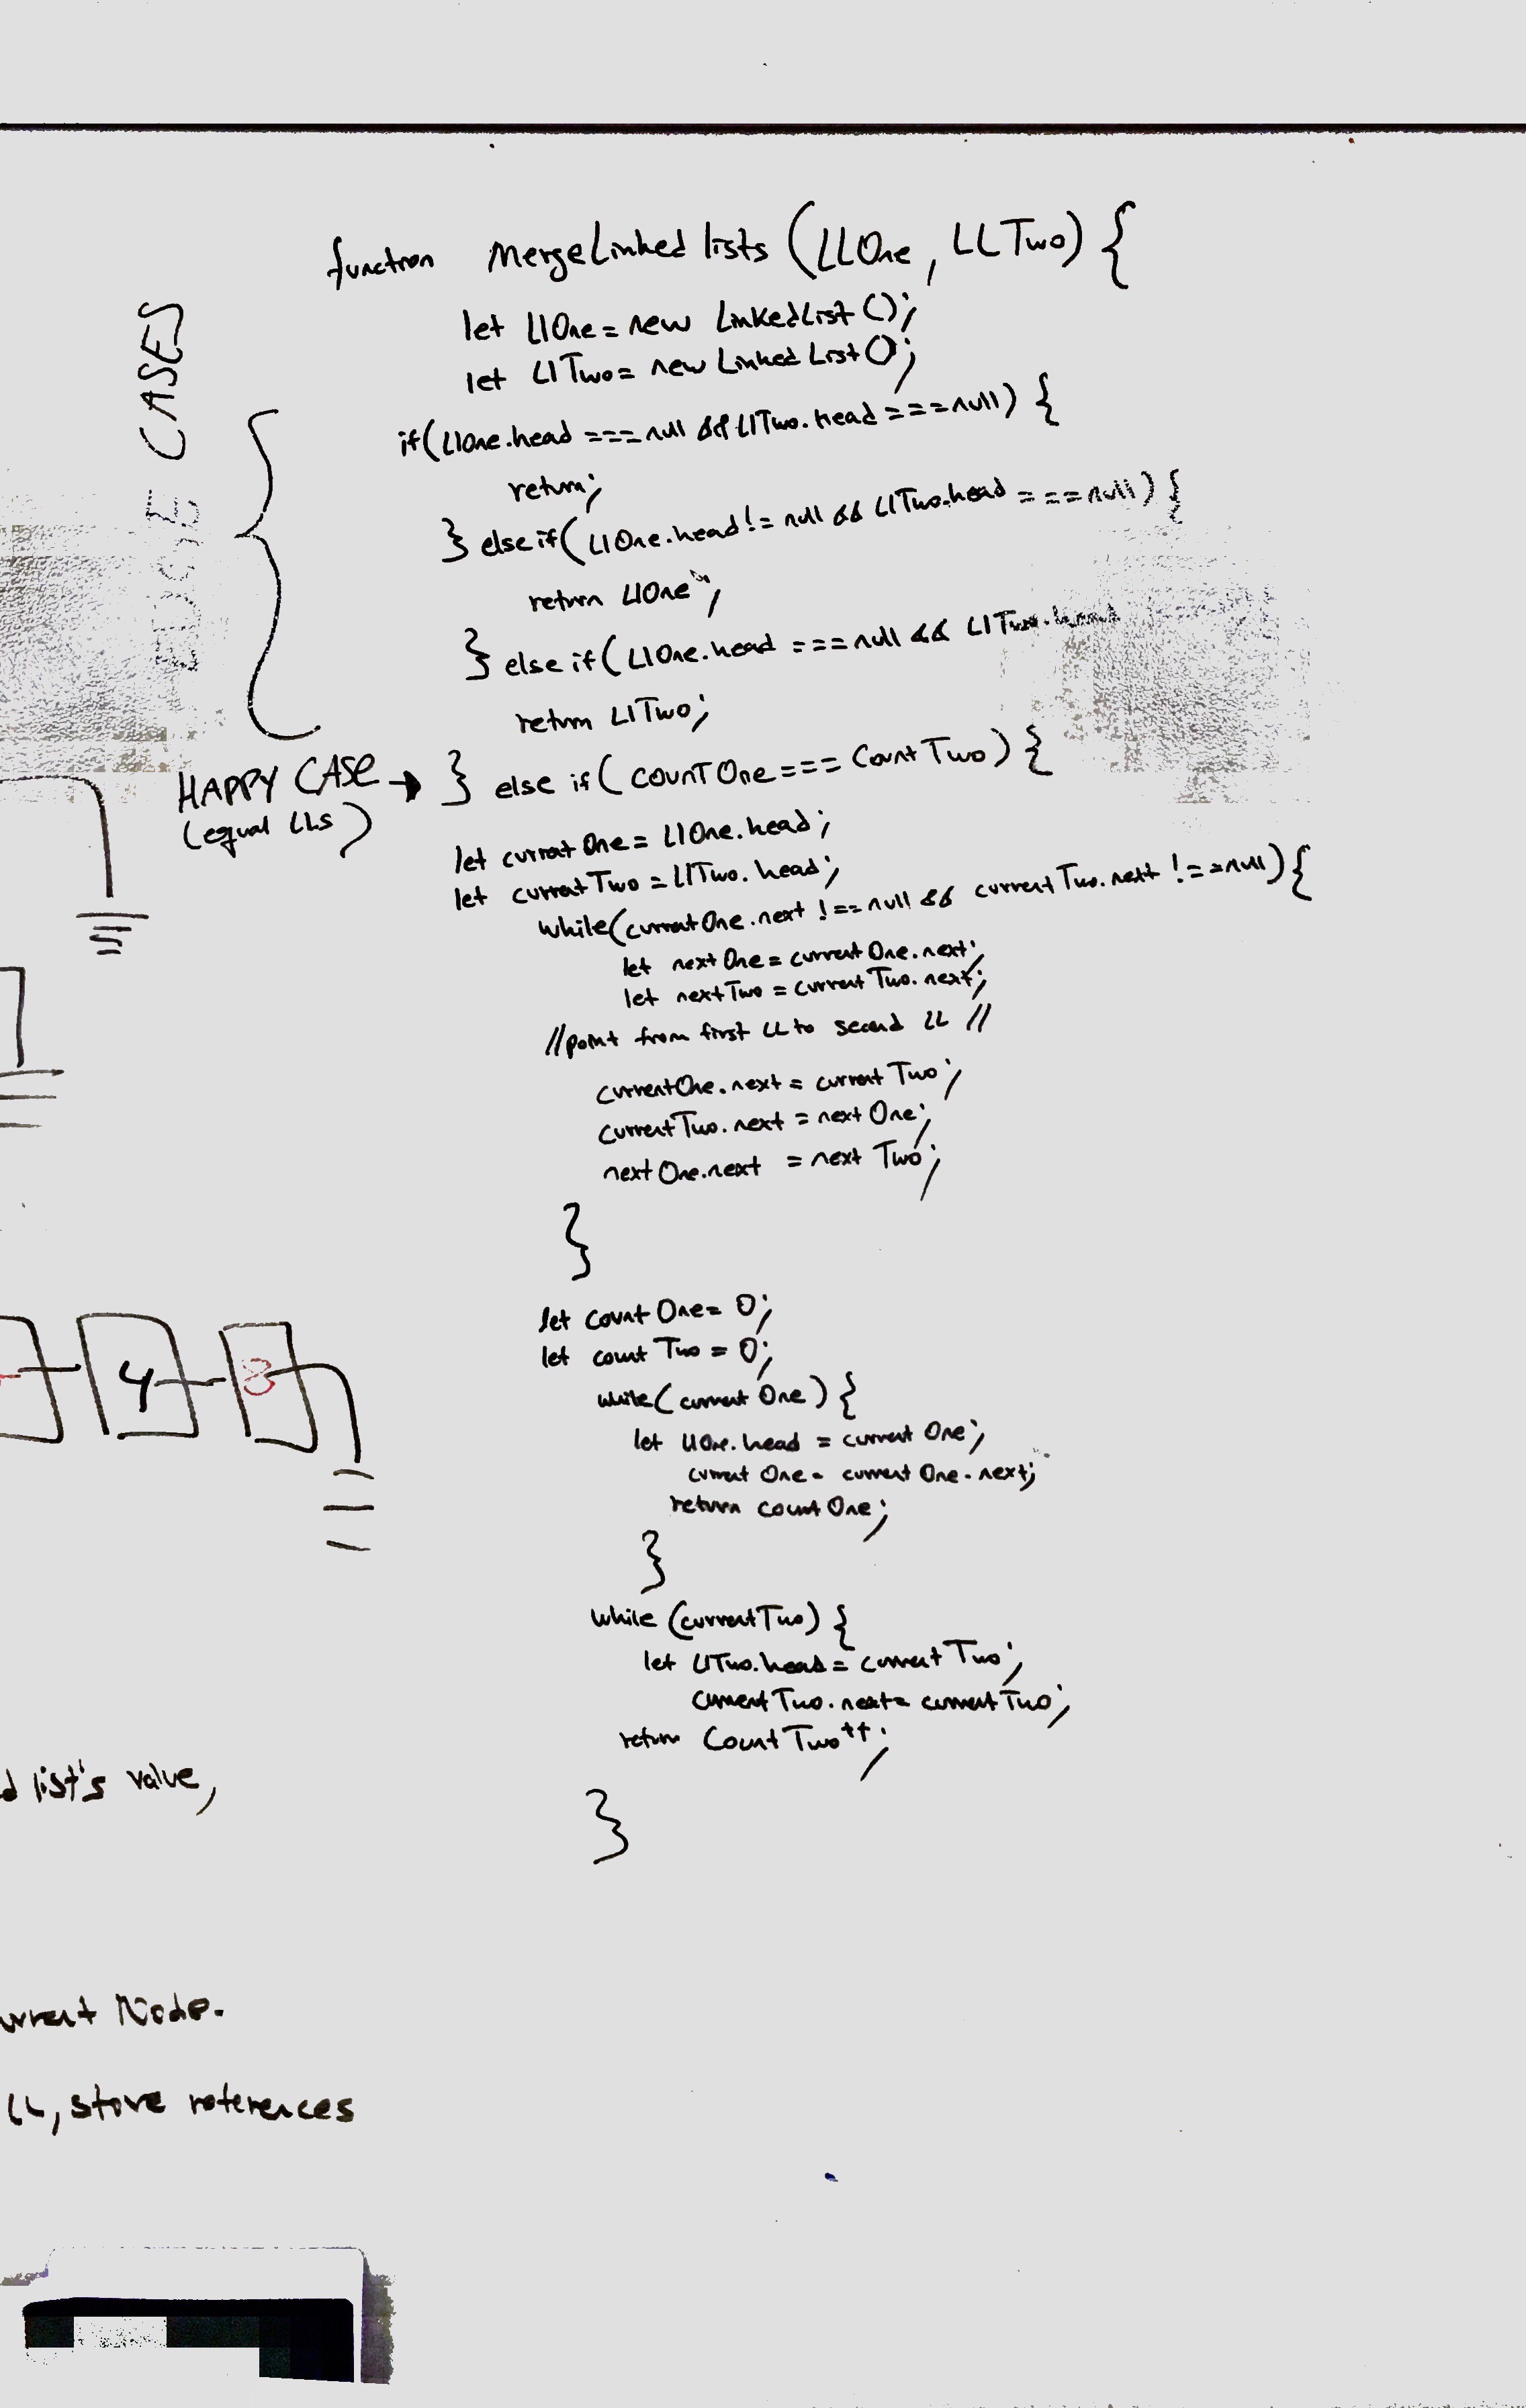 function mergeLinkedlists (LLOne, LLTwo) {
let LlOne = new LinkedList ();
let LlTwo = new Linked List ();
EDGE CASES
if(LlOne.head === null && LlTwo.head === null) {
return;
} else if (LlOne.head != null && LlTwo.head === null) {
return LlOne;
} else if (LlOne.head === null && LlTwo.head
return LlTwo;
HAPPY CASE → } else if (countOne === CountTwo) {
(equal LLs)
let currentOne = LlOne.head;
let currentTwo = LlTwo.head;
while(currentOne.next !== null && currentTwo.next !== null) {
let nextOne = currentOne.next;
let nextTwo = currentTwo.next;
//point from first LL to second LL //
currentOne.next = currentTwo;
currentTwo.next = nextOne;
nextOne.next = nextTwo;
}
let countOne = 0;
let countTwo = 0;
while(currentOne) {
let LlOne.head = currentOne;
currentOne = currentOne.next;
return countOne;
}
while (currentTwo) {
let LlTwo.head = currentTwo;
currentTwo.next = currentTwo;
return CountTwo++;
}
4 8
list's value,
Node.
LL, store references